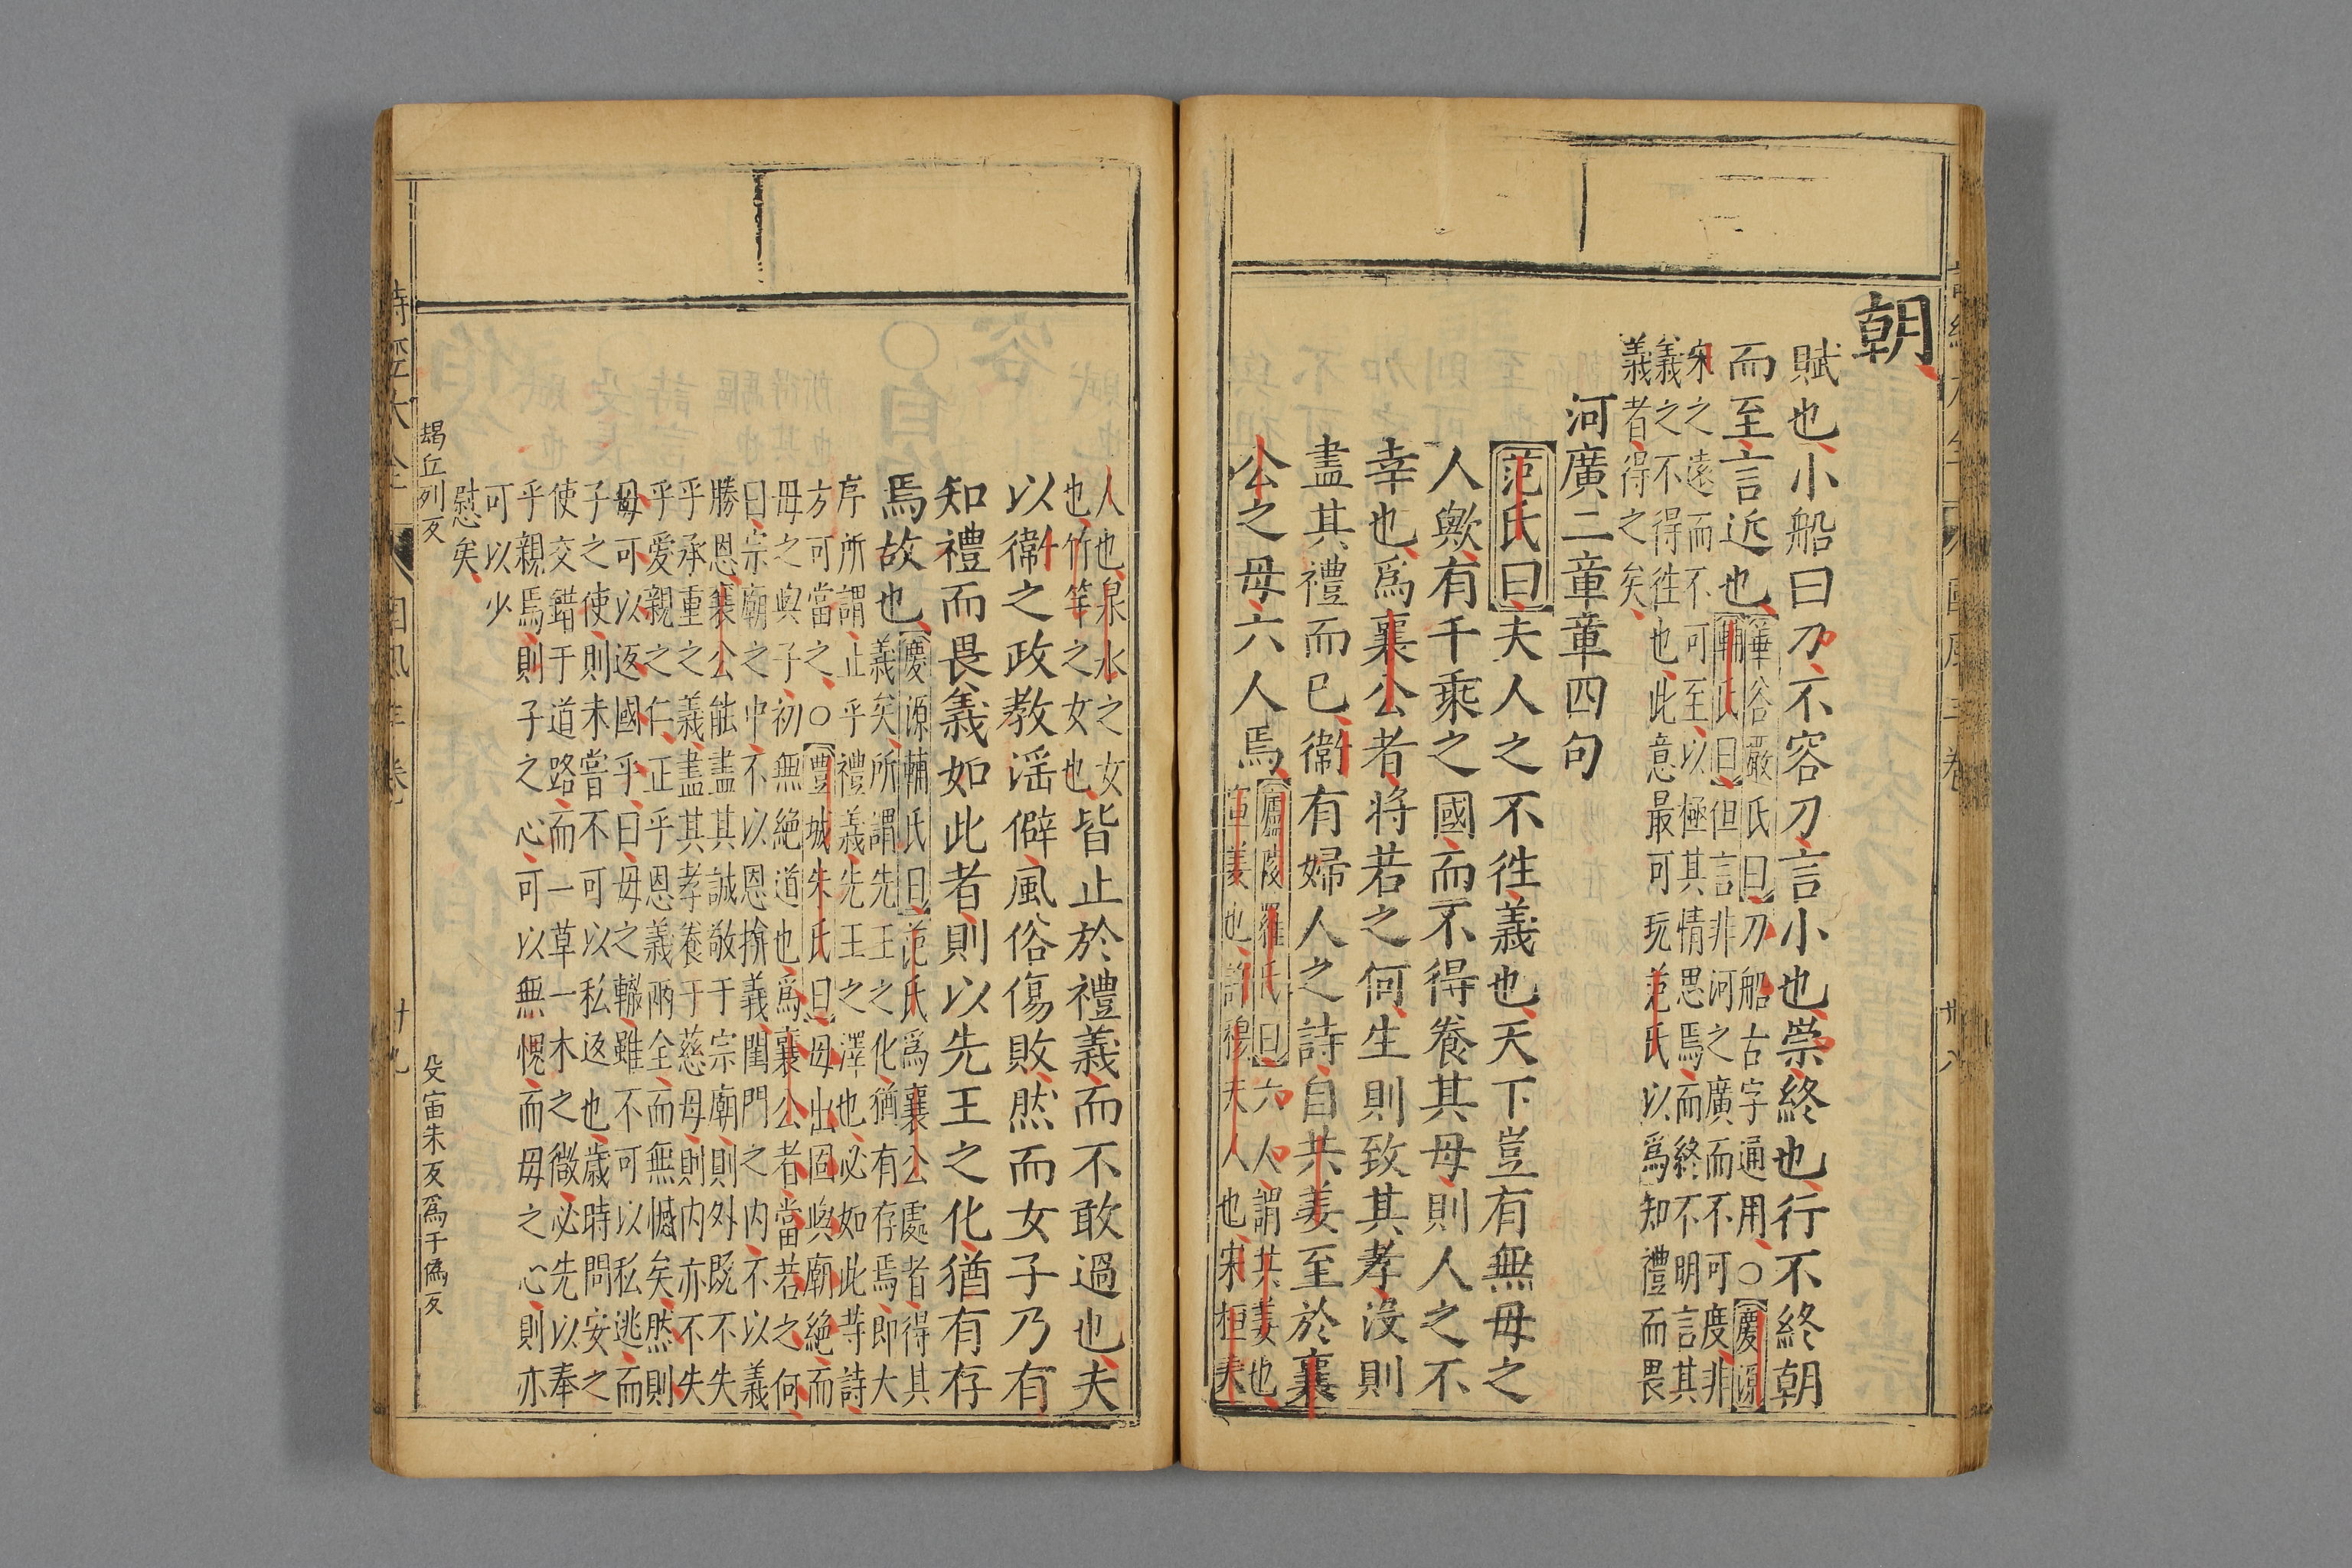 朝
賦也小船曰刀不容刀言小也崇終也行不終朝
而至言近也
華谷嚴氏曰刀船古字通用○慶源
輔氏曰但言非河之廣而不可度非
宋之遠而不可至以極其情思焉而終不明言其
義之不得徃也此意最可玩范氏以爲知禮而畏
義者得之矣
河廣二章章四句
范氏曰夫人之不徃義也天下豈有無母之
人歟有千乘之國而不得養其母則人之不
幸也爲襄公者将若之何生則致其孝沒則
盡其禮而已衞有婦人之詩自共姜至於襄
公之母六人焉
廬陵羅氏曰六人謂共姜也
莊姜也許穆夫人也宋桓夫
人也泉水之女
也竹竿之女也
皆止於禮義而不敢過也夫
以衞之政教淫僻風俗傷敗然而女子乃有
知禮而畏義如此者則以先王之化猶有存
焉故也
慶源輔氏曰范氏爲襄公處者得其
義矣所謂先王之化猶有存焉即大
序所謂止乎禮義先王之澤也必如此等詩
方可當之○豐城朱氏曰母出固與廟絶而
母之與子初無絶道也爲襄公者當若之何
曰宗廟之中不以恩揜義閨門之内不以義
勝恩襄公能盡其誠敬于宗廟則外既不失
乎承重之義盡其孝養于慈母則内亦不失
乎愛親之仁正乎恩義兩全而無憾矣然則
母可以返國乎曰母之轍雖不可以私逃而
子之使則未嘗不可以私返也歲時問安之
使交錯于道路而一草一木之微必先以奉
乎親焉則子之心可以無愧而母之心則亦
可以少
慰矣
朅丘列反 殳宙朱反爲于僞反
詩經大全 國風 三卷 廿九